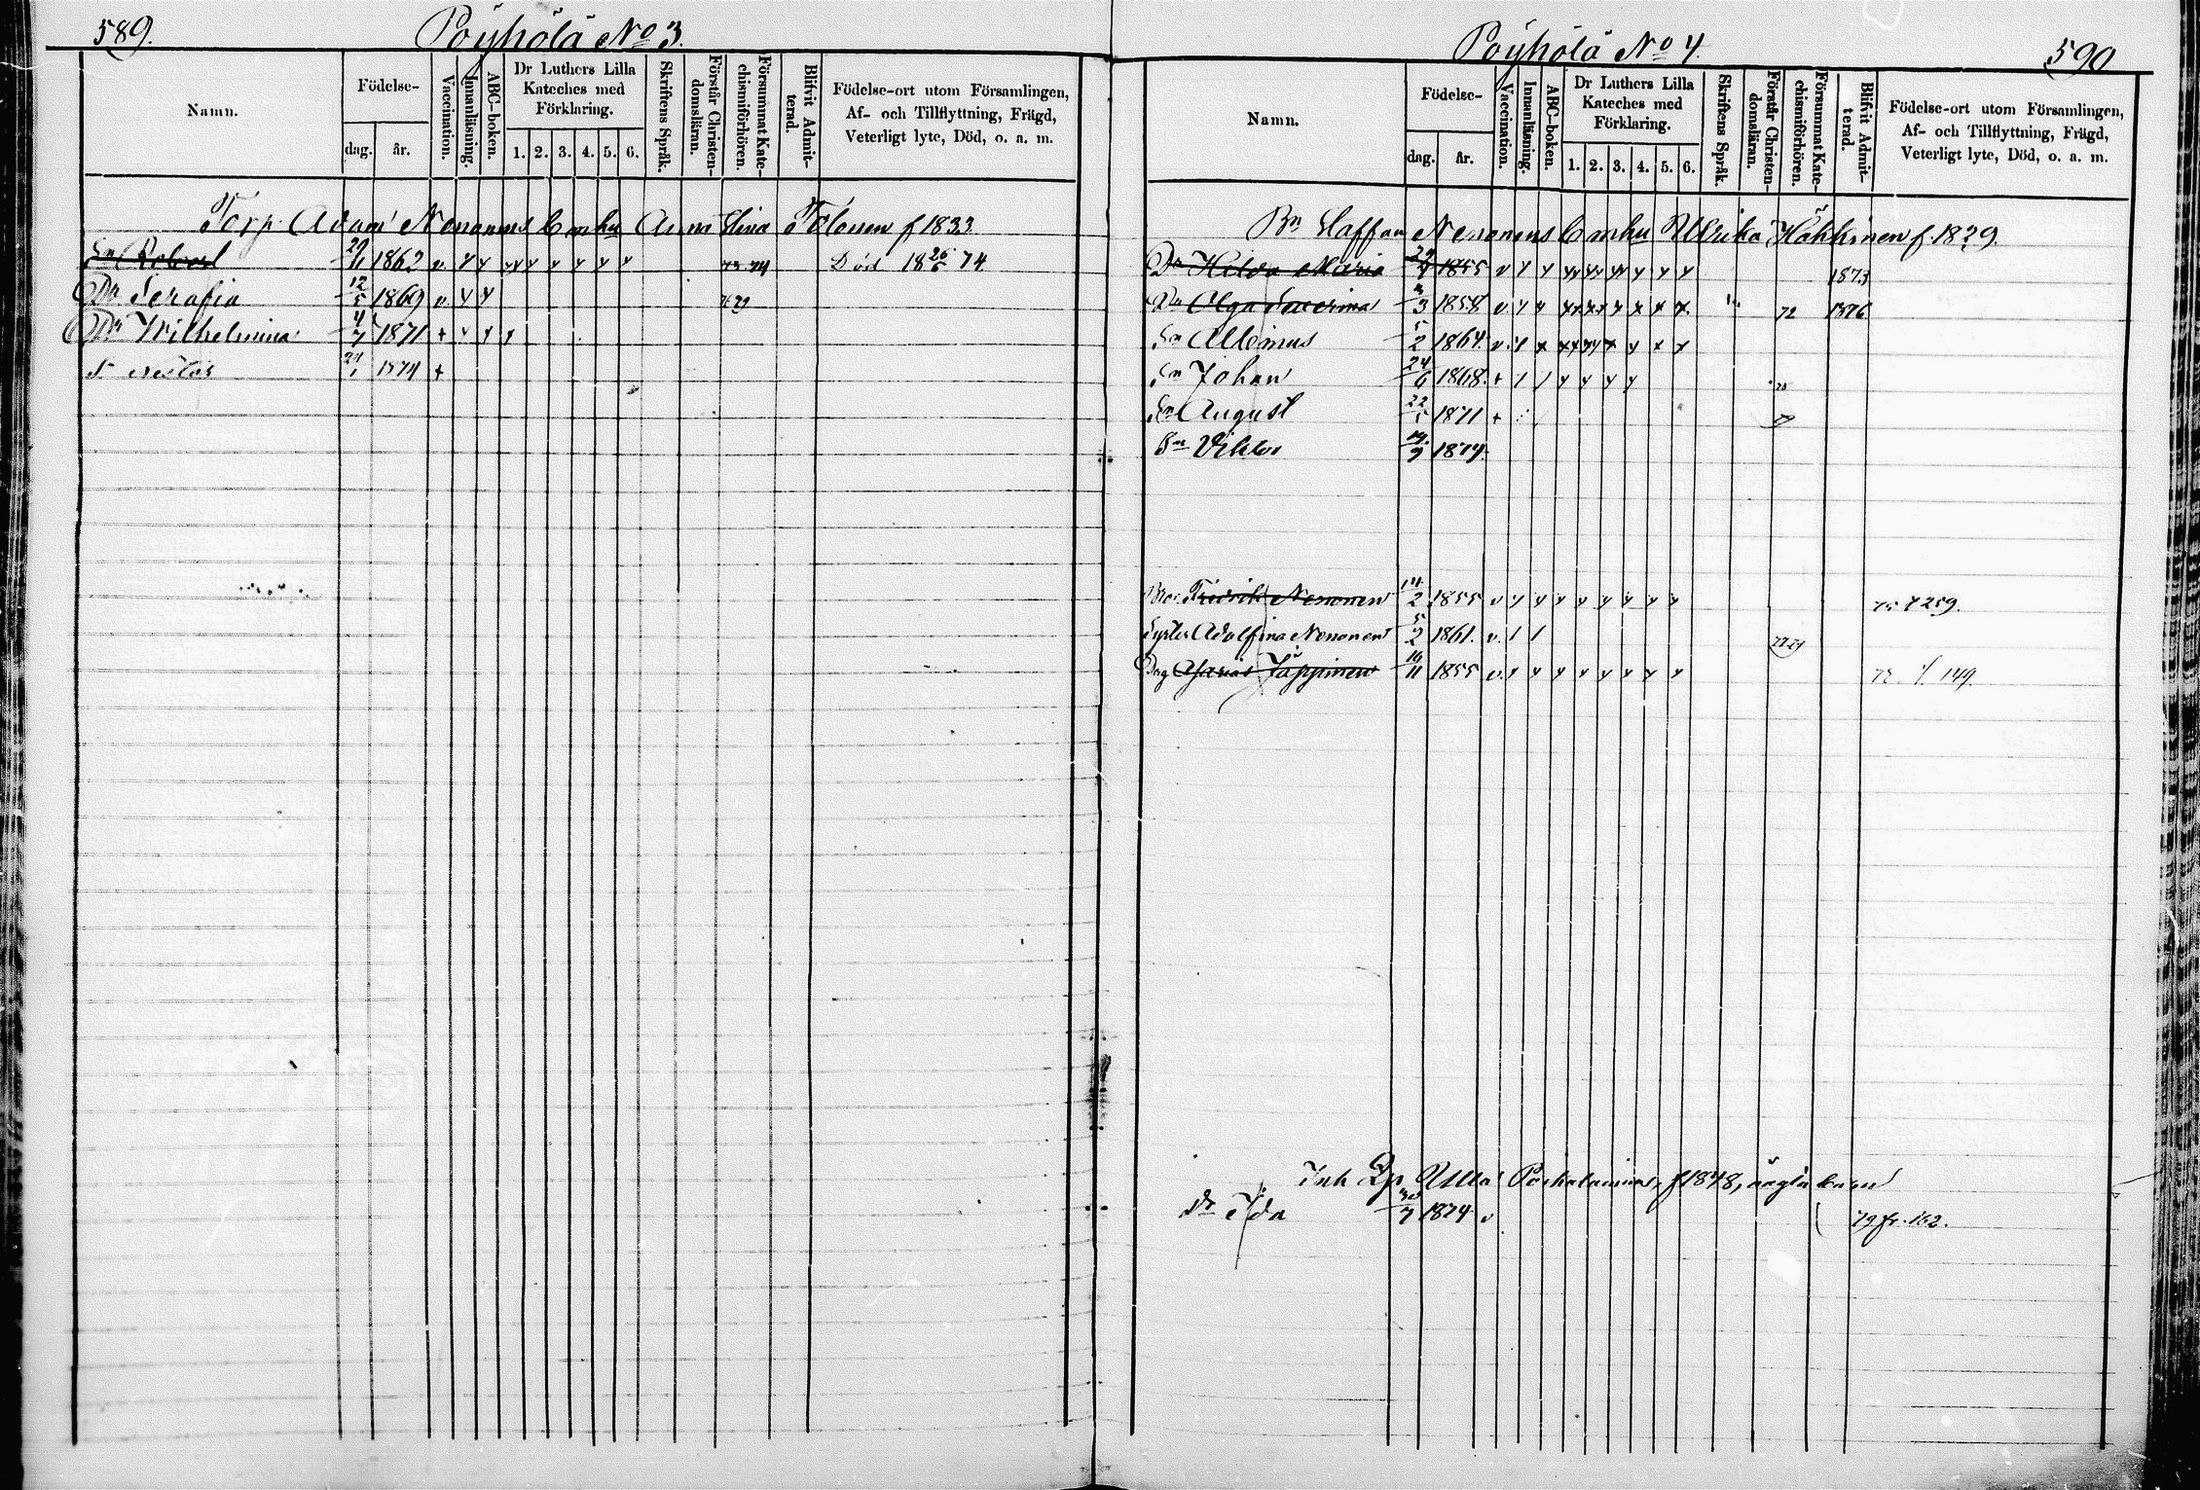 589.
Pöyhölä No 3.
Namn.
Födelse-
dag.
år.
Vaccination.
Innanläsning.
ABC-boken.
Dr Luthers Lilla
Kateches med
Förklaring.
1. 2. 3. 4. 5. 6.
Skriftens Språk.
Förstår Christen-
domsläran.
Försummat Kate-
chismiförhören.
Blifvit Admit-
terad.
Födelse-ort utom Församlingen,
Af- och Tillflyttning, Frägd,
Veterligt lyte, Död, o. a. m.
Torp Adam Nenonens Anna Stina Tolonen f 1833
Sn Robert 1862 v. Död 18 26/6 74
Dr Serafia 12/5 1869 v
Dr Wilhelmina 4/7 1871 +
Sn Nestor 1874 +
Pöyhölä No 4.
590
Namn.
Födelse-
dag.
år.
Vaccination.
Innanläsning.
ABC-boken.
Dr Luthers Lilla
Kateches med
Förklaring.
1. 2. 3. 4. 5. 6.
Skriftens Språk.
Förstår Christen-
domsläran.
Försummat Kate-
chismiförhören.
Blifvit Admit-
terad.
Födelse-ort utom Församlingen,
Af- och Tillflyttning, Frägd,
Veterligt lyte, Död, o. a. m.
Bn Staffan Nenonens Ulrika Häkkinen f. 1829.
Dr Hilda Maria 1855 v 1873
Dr Olga 3/3 1858 v 72 1876
Sn Albinus 5/2 1864 v
Sn Johan 24/6 1868 +
Sn August 22/5 1871 +
Sn Viktor 1874
Bror Fredrik Nenonen 14/2 1855 v 75 f 259.
Syster Adolfina Nenonen 5/2 1861. v.
Drg Jäppinen 16/11 1855 v. 149.
Inh Ulla f 1848, oägta barn
Dr Ida 30/7 1874 v 79 fr. 162.